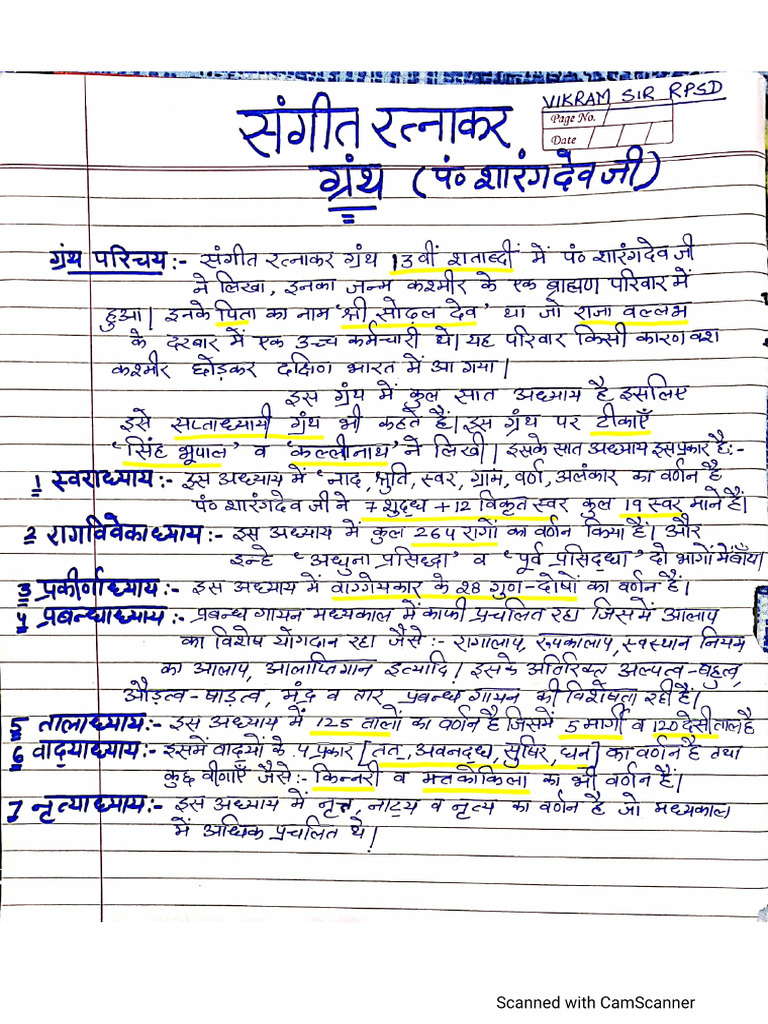 VIKRAM SIR RPSD
Page No.
Date
संगीत रत्नाकर
ग्रंथ (पं० शारंगदेव जी)
ग्रंथ परिचय:- संगीत रत्नाकर ग्रंथ 13वीं शताब्दीं में पं० शारंगदेव जी
ने लिखा, इनका जन्म कश्मीर के एक ब्राह्मण परिवार में
हुआ। इनके पिता का नाम 'श्री सोढ़ल देव' था जो राजा वल्लभ
के दरबार में एक उच्च कर्मचारी थे। यह परिवार किसी कारण वश
कश्मीर छोड़कर दक्षिण भारत में आ गया।
इस ग्रंथ में कुल सात अध्याय है इसलिए
इसे सप्ताध्यायी ग्रंथ भी कहते हैं। इस ग्रंथ पर टीकाएँ
'सिंह भूपाल' व 'कल्लीनाथ' ने लिखी। इसके सात अध्याय इस प्रकार है:-
1 स्वराध्याय:- इस अध्याय में 'नाद, श्रुति, स्वर, ग्राम, वर्ण, अलंकार का वर्णन है
पं० शारंगदेव जी ने 7 शुद्ध + 12 विकृत स्वर कुल 19 स्वर माने हैं।
2 रागविवेकाध्याय:- इस अध्याय में कुल 264 रागों का वर्णन किया हैं। और
इन्हे 'अधुना प्रसिद्धा' व 'पूर्व प्रसिद्धा' दो भागों में बाँया।
3 प्रकीर्णाध्याय:- इस अध्याय में वाग्गेयकार के 28 गुण-दोषों का वर्णन हैं।
4 प्रबन्धाध्याय:- प्रबन्ध गायन मध्यकाल में काफी प्रचलित रहा जिसमें आलाप
का विशेष योगदान रहा जैसे:- रागालाप, रूपकालाप, स्वस्थान नियम
का आलाप, आलाप्तिगान इत्यादि! इसके अतिरिक्त अल्पत्व-बहुत्व,
औड़त्व-षाड़त्व, मंद्र व तार प्रबन्ध गायन की विशेषता रही हैं।
5 तालाध्याय:- इस अध्याय में 125 तालों का वर्णन है जिसमें 5 मार्गी व 120 देसी ताल है
6 वाद्याध्याय:- इसमें वाद्यों के 4 प्रकार [तत्, अवनद्ध, सुषिर, घन] का वर्णन है तथा
कुछ वीणाएँ जैसे:- किन्नरी व मत्तकोकिला का भी वर्णन हैं।
7 नृत्याध्याय:- इस अध्याय में नृत्त, नाट्य व नृत्य का वर्णन है जो मध्यकाल
में अधिक प्रचलित थे।
Scanned with CamScanner